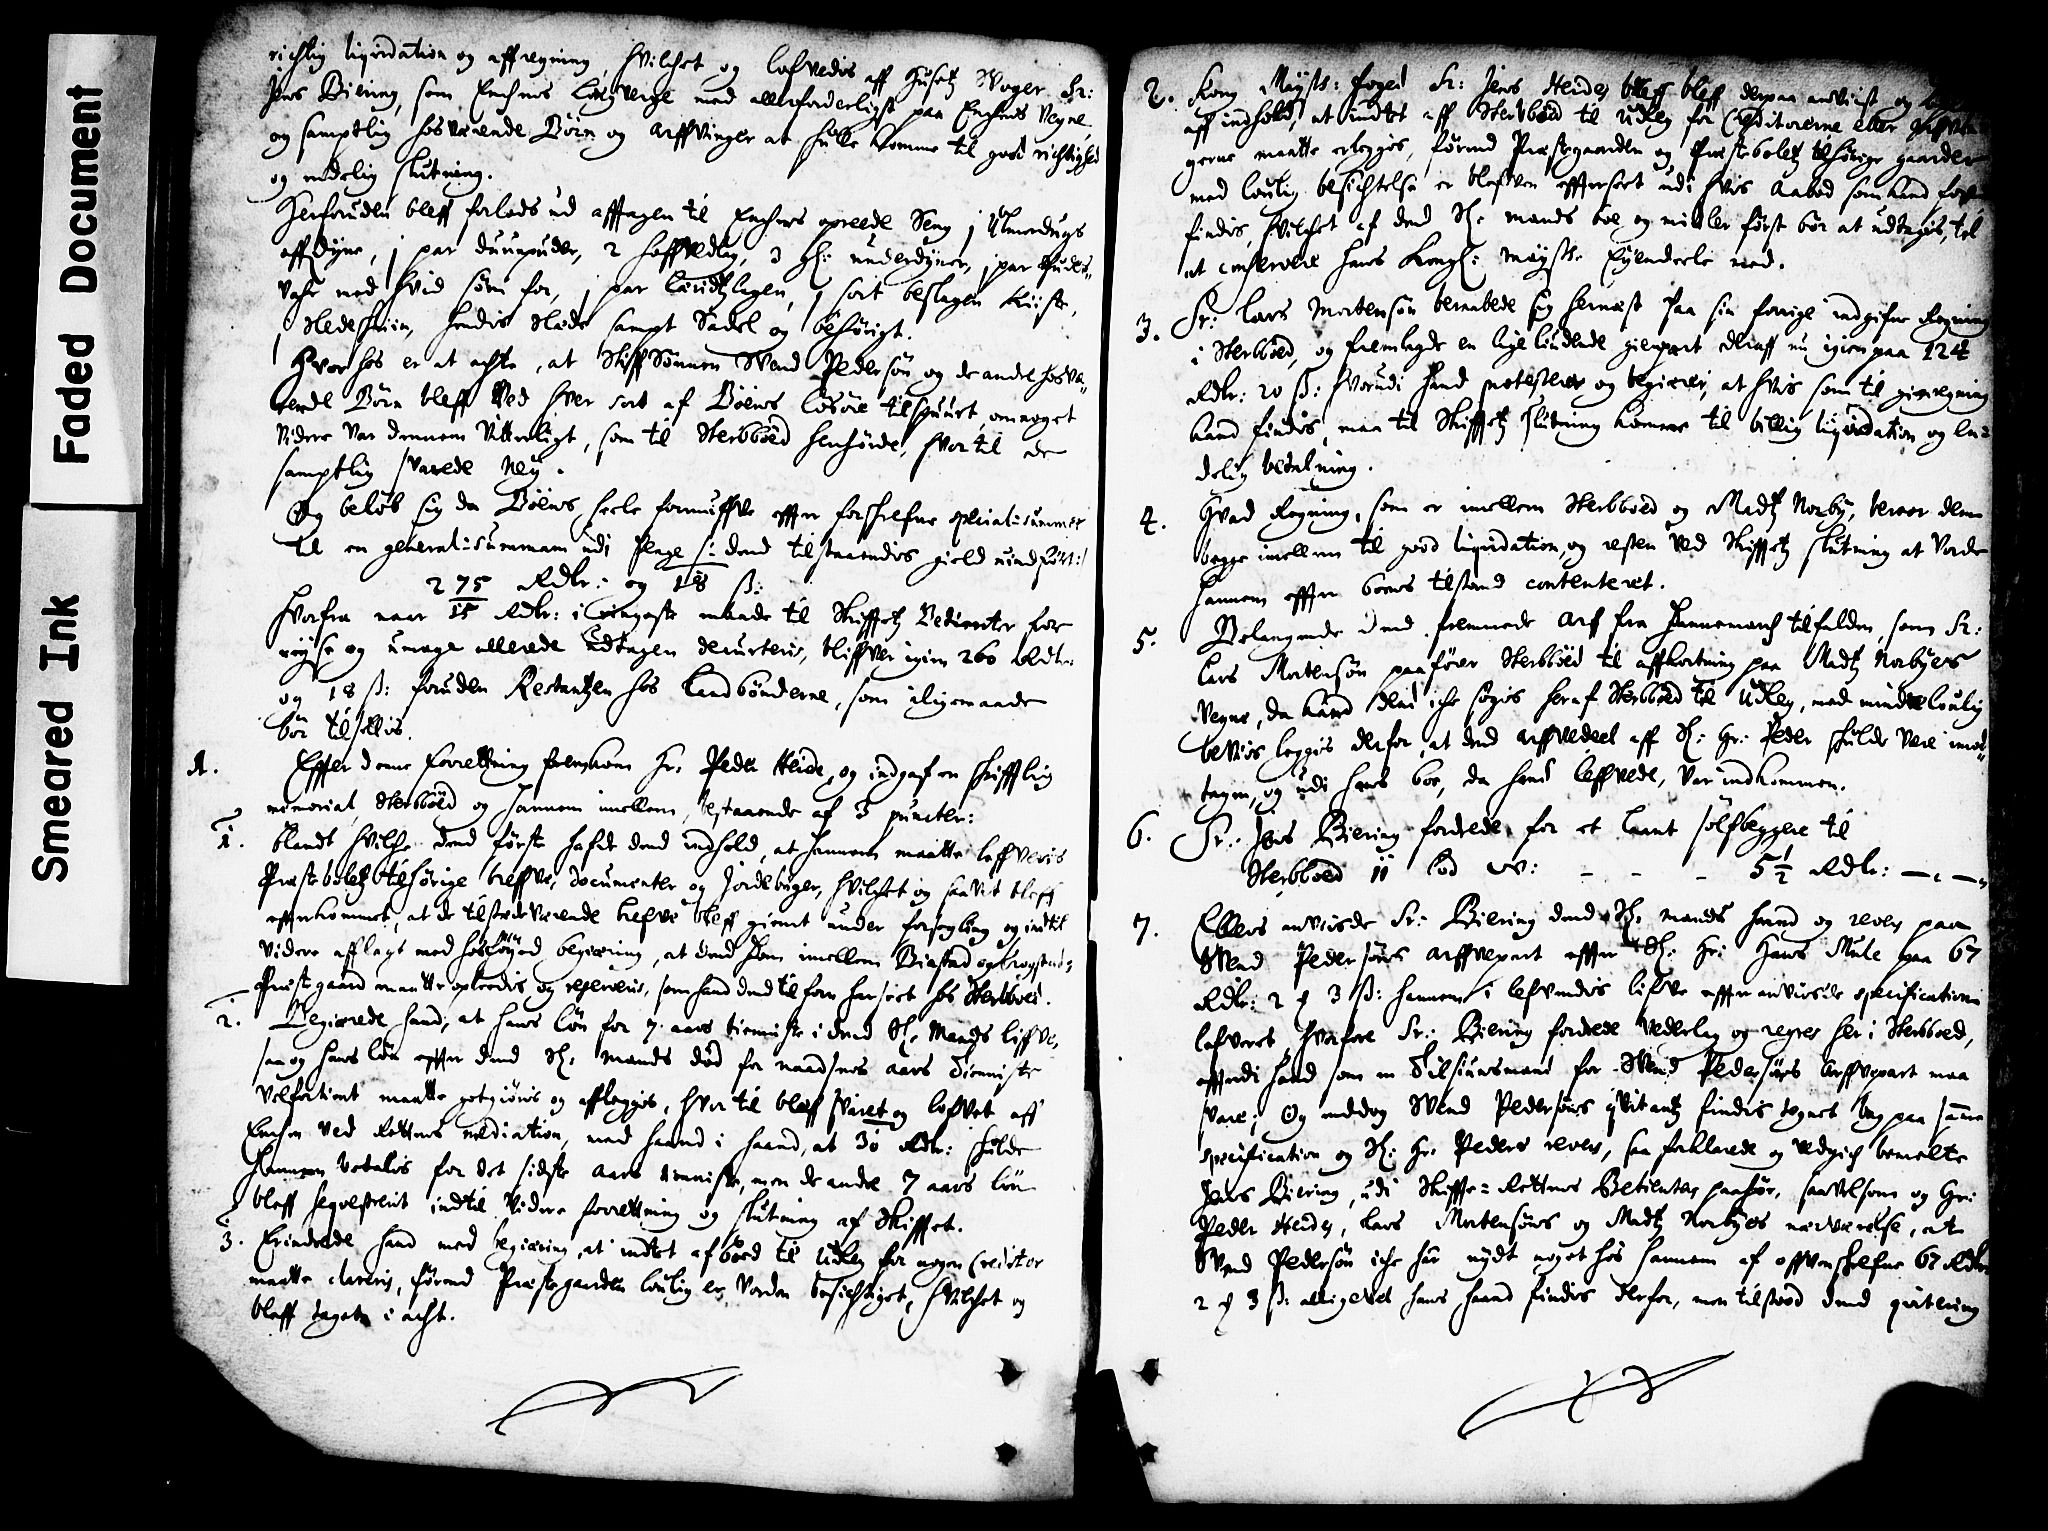 Faded Document
Smeared Ink
richtig liqvidation og affregning, hvilchet og lofvedis aff Husetz Svoger Sr:
Jens Biering, som Enchens Laugverge med allerforderligst paa Enchens Vegne,
og samptlig hosværende Börn og Arffvinger at skulle komme til god richtighed
og endelig slutning.
Herforuden bleff forlods ud afftagen til Enchens opreede Seng j Olmerdugs
offdyne, j par duunpuder, 2 hoffvedlag, 3 gl: underdyner, j par Pudes-
vahr med hvid söm for, j par lerridtzlagen, j sort beslagen Kiiste,
j Kledeskriin, hendis Klæde sampt Sadel og behörigt.
Hvorhos er at achte, at Stiffsönnen Svend Pedersön og de andre hosvæ-
rende Börn bleff ved hver sort af Boens lösöre tilspurt, om noget
videre var dennem vitterligt, som til Sterbboed henhörde, hvortil de
samptlig svarede Ney.
Og belöb sig da Boens heele formuffve effter forskrefne specialsummer
til en generalsummam udi Penge /: dend tilstaaendis gield uindfört :/
275 Rdlr: og 18 ß:
hvorfra naar 15 Rdlr: i ringeste maade til Skifftetz Betienter for
reyse og umage allerede udtagen decurteris, bliffver igien 260 Rdlr:
og 18 ß: foruden Restantzen hos Landbönderne, som iligemaade
bör tilsettis.
A. Effter denne forrettning fremkom Hr. Peder Heide, og indgaf en skrifftlig
memorial, Sterbboed og hannem imellem, bestaaende af 3 puncter:
1. blandt hvilche dend förste hafde dend indhold, at hannem maatte leffveris
Præstebolets tilhörige breffve, documenter og Jordeböger, hvilchet og saavit bleff
effterkommet, at de tilstedeværende brefve bleff giemt under forsegling og indtil
videre afflagt med hosföyed begiæring, at dend dom imellem Biestad og
Præstegaard maatte opleedis og repereris, som hand dend tilforn har seet hos Sterboed.
2. Begierede hand, at hans lön for 7 aars tienniste i dend Sl. Mands liffve,
saa og hans lön effter dend Sl. mands död for naadsens aars Tienniste
velfortient maatte gotgiöris og afflegges, hvortil bleff svaret og lofvet aff
Enchen ved Rettens mediation, med haand i haand, at 30 Rdlr: skulde
hannem betalis for det sidste aars tienniste, men de andre 7 aars lön
bleff seqvestrerit indtil videre forrettning og slutning af Skifftet.
3. Erindrede hand med begiæring, at indtet af boed til Udleg for nogen Creditor
maatte clareris, förend Præstegaarden loulig er vorden besichtiget, hvilchet og
bleff taget i acht.
2. Kong Mayst: foged Sr: Jens Heides bleff derpaa anviist og
aff indhold, at indtet aff Sterbboed til Udleg for Creditorerne eller
gerne maatte erlegges, förend Præstegaarden og Præstebolets tilhörige gaarder
med loulig besichtelse er bleffven efftersect udi hvis Aabod som paa
findis, hvilchet af dend Sl. mands boe og midler först bör at udtages, til
at conservere hans Kongl: Mayst: Eyendele med.
3. Sr: Lars Mortensön beraabede sig hernæst paa sin forrige indgifne Regning
i Sterbboed, og fremlagde en lige lüdende gienpart deraff nu igien paa 124
Rdlr: 20 ß: hvorudi hand protesterer og begierer, at hvis som til gienregning
hand findis, maa til Skifftetz slutning komme til billig liqvidation og en-
delig betalning.
4. Hvad Regning, som er imellem Sterbboed og Madtz Norby, beroer dem
begge imellem til good liqvidation, og resten ved Skifftetz slutning at vorde
hannem effter boens tilstand contenteret.
5. Belangende dend fremmede Arf fra Dannemarch tilfalden, som Sr:
Lars Mortensön paaförer Sterbboed til affkortning paa Madtz Norbyes
Vegne, da kand dend iche söges heraf Sterbboed til Udleg, med mindre loulig
beviis legges derfor, at dend arffvedeel aff Sl: Hr: Peder skulde være imod-
tagen, og udi hans boe, da hand leffvede, var indkommen.
6. Sr: Jens Biering fordrede for et laant sölfbeggere til
Sterbboed 11 lod W: - - - 5 1/2 Rdlr: — „ — „
7. Ellers anviisde Sr: Biering dend Sl. mands haand og revers paa
Svend Pedersöns arffvepart effter Sl: Hr: Hans Mule paa 67
Rdlr: 2 # 3 ß: hannem i lefvendis lifve effter anviisde specification
lefveret, hvorfore Sr: Biering fordrede vederlag og regres her i Sterbboed,
efftersom hand som en Tilsiunsmand for Svend Pedersöns Arffvepart maa
svare; Og endog Svend Pedersöns qvitantz findis tegnet bag paa samme
specification og Sl: Hr: Peders revers, saa forklarede og vedgich bemelte
Jens Biering, udi Skiffte-Rettens Betienters paahör, saavelsom og Hr:
Peder Heides, Lars Mortensöns og Madtz Norbyes nærværelse, at
Svend Pedersön iche har nydt noget hos hannem af offvenskrefne 67 Rdlr:
2 # 3 ß: alligevel hans haand findis derfor, men tilstood dend qvitering